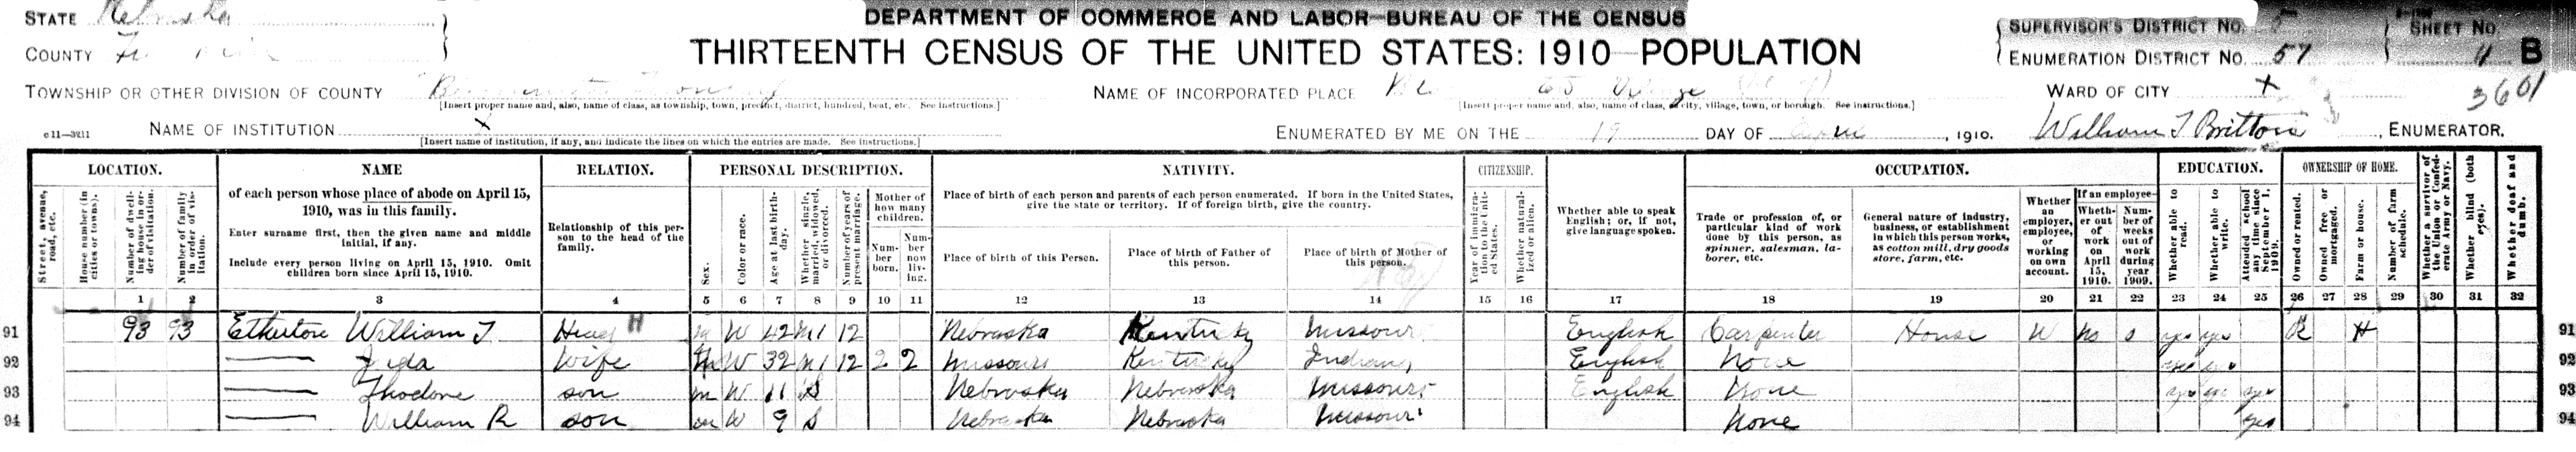 STATE Nebraska
DEPARTMENT OF COMMERCE AND LABOR—BUREAU OF THE CENSUS
SUPERVISOR'S DISTRICT NO. 5
SHEET NO.
COUNTY
THIRTEENTH CENSUS OF THE UNITED STATES: 1910—POPULATION
ENUMERATION DISTRICT NO. 57
11 B
TOWNSHIP OR OTHER DIVISION OF COUNTY
[Insert proper name and, also, name of class, as township, town, precinct, district, hundred, beat, etc. See instructions.]
NAME OF INCORPORATED PLACE
[Insert proper name and, also, name of class, as city, village, town, or borough. See instructions.]
WARD OF CITY X
3601
c 11—3211
NAME OF INSTITUTION X
[Insert name of institution, if any, and indicate the lines on which the entries are made. See instructions.]
ENUMERATED BY ME ON THE 19 DAY OF , 1910.
William T Britton , ENUMERATOR.
LOCATION. NAME RELATION. PERSONAL DESCRIPTION. NATIVITY. CITIZENSHIP. OCCUPATION. EDUCATION. OWNERSHIP OF HOME.
Street, avenue, road, etc.
House number (in cities or towns).
Number of dwelling house in order of visitation.
Number of family in order of visitation.
of each person whose place of abode on April 15, 1910, was in this family.
Enter surname first, then the given name and middle initial, if any.
Include every person living on April 15, 1910. Omit children born since April 15, 1910.
Relationship of this person to the head of the family.
Sex.
Color or race.
Age at last birthday.
Whether single, married, widowed, or divorced.
Number of years of present marriage.
Mother of how many children.
Number born.
Number now living.
Place of birth of each person and parents of each person enumerated. If born in the United States, give the state or territory. If of foreign birth, give the country.
Place of birth of this Person.
Place of birth of Father of this person.
Place of birth of Mother of this person.
Year of immigration to the United States.
Whether naturalized or alien.
Whether able to speak English; or, if not, give language spoken.
Trade or profession of, or particular kind of work done by this person, as spinner, salesman, laborer, etc.
General nature of industry, business, or establishment in which this person works, as cotton mill, dry goods store, farm, etc.
Whether an employer, employee, or working on own account.
If an employee—
Whether out of work on April 15, 1910.
Number of weeks out of work during year 1909.
Whether able to read.
Whether able to write.
Attended school any time since September 1, 1909.
Owned or rented.
Owned free or mortgaged.
Farm or house.
Number of farm schedule.
Whether a survivor of the Union or Confederate Army or Navy.
Whether blind (both eyes).
Whether deaf and dumb.
1 2 3 4 5 6 7 8 9 10 11 12 13 14 15 16 17 18 19 20 21 22 23 24 25 26 27 28 29 30 31 32
91 93 93 Etherton William T Head H m W 42 M1 12 Nebraska Kentucky Missouri English Carpenter House W no 0 yes yes R H 91
92 —— Ida Wife W 32 M1 12 2 2 Missouri Kentucky Indiana English None 92
93 —— Thodore son m W 11 S Nebraska Nebraska Missouri English None yes yes yes 93
94 —— William R son m W 9 S Nebraska Nebraska Missouri None yes 94